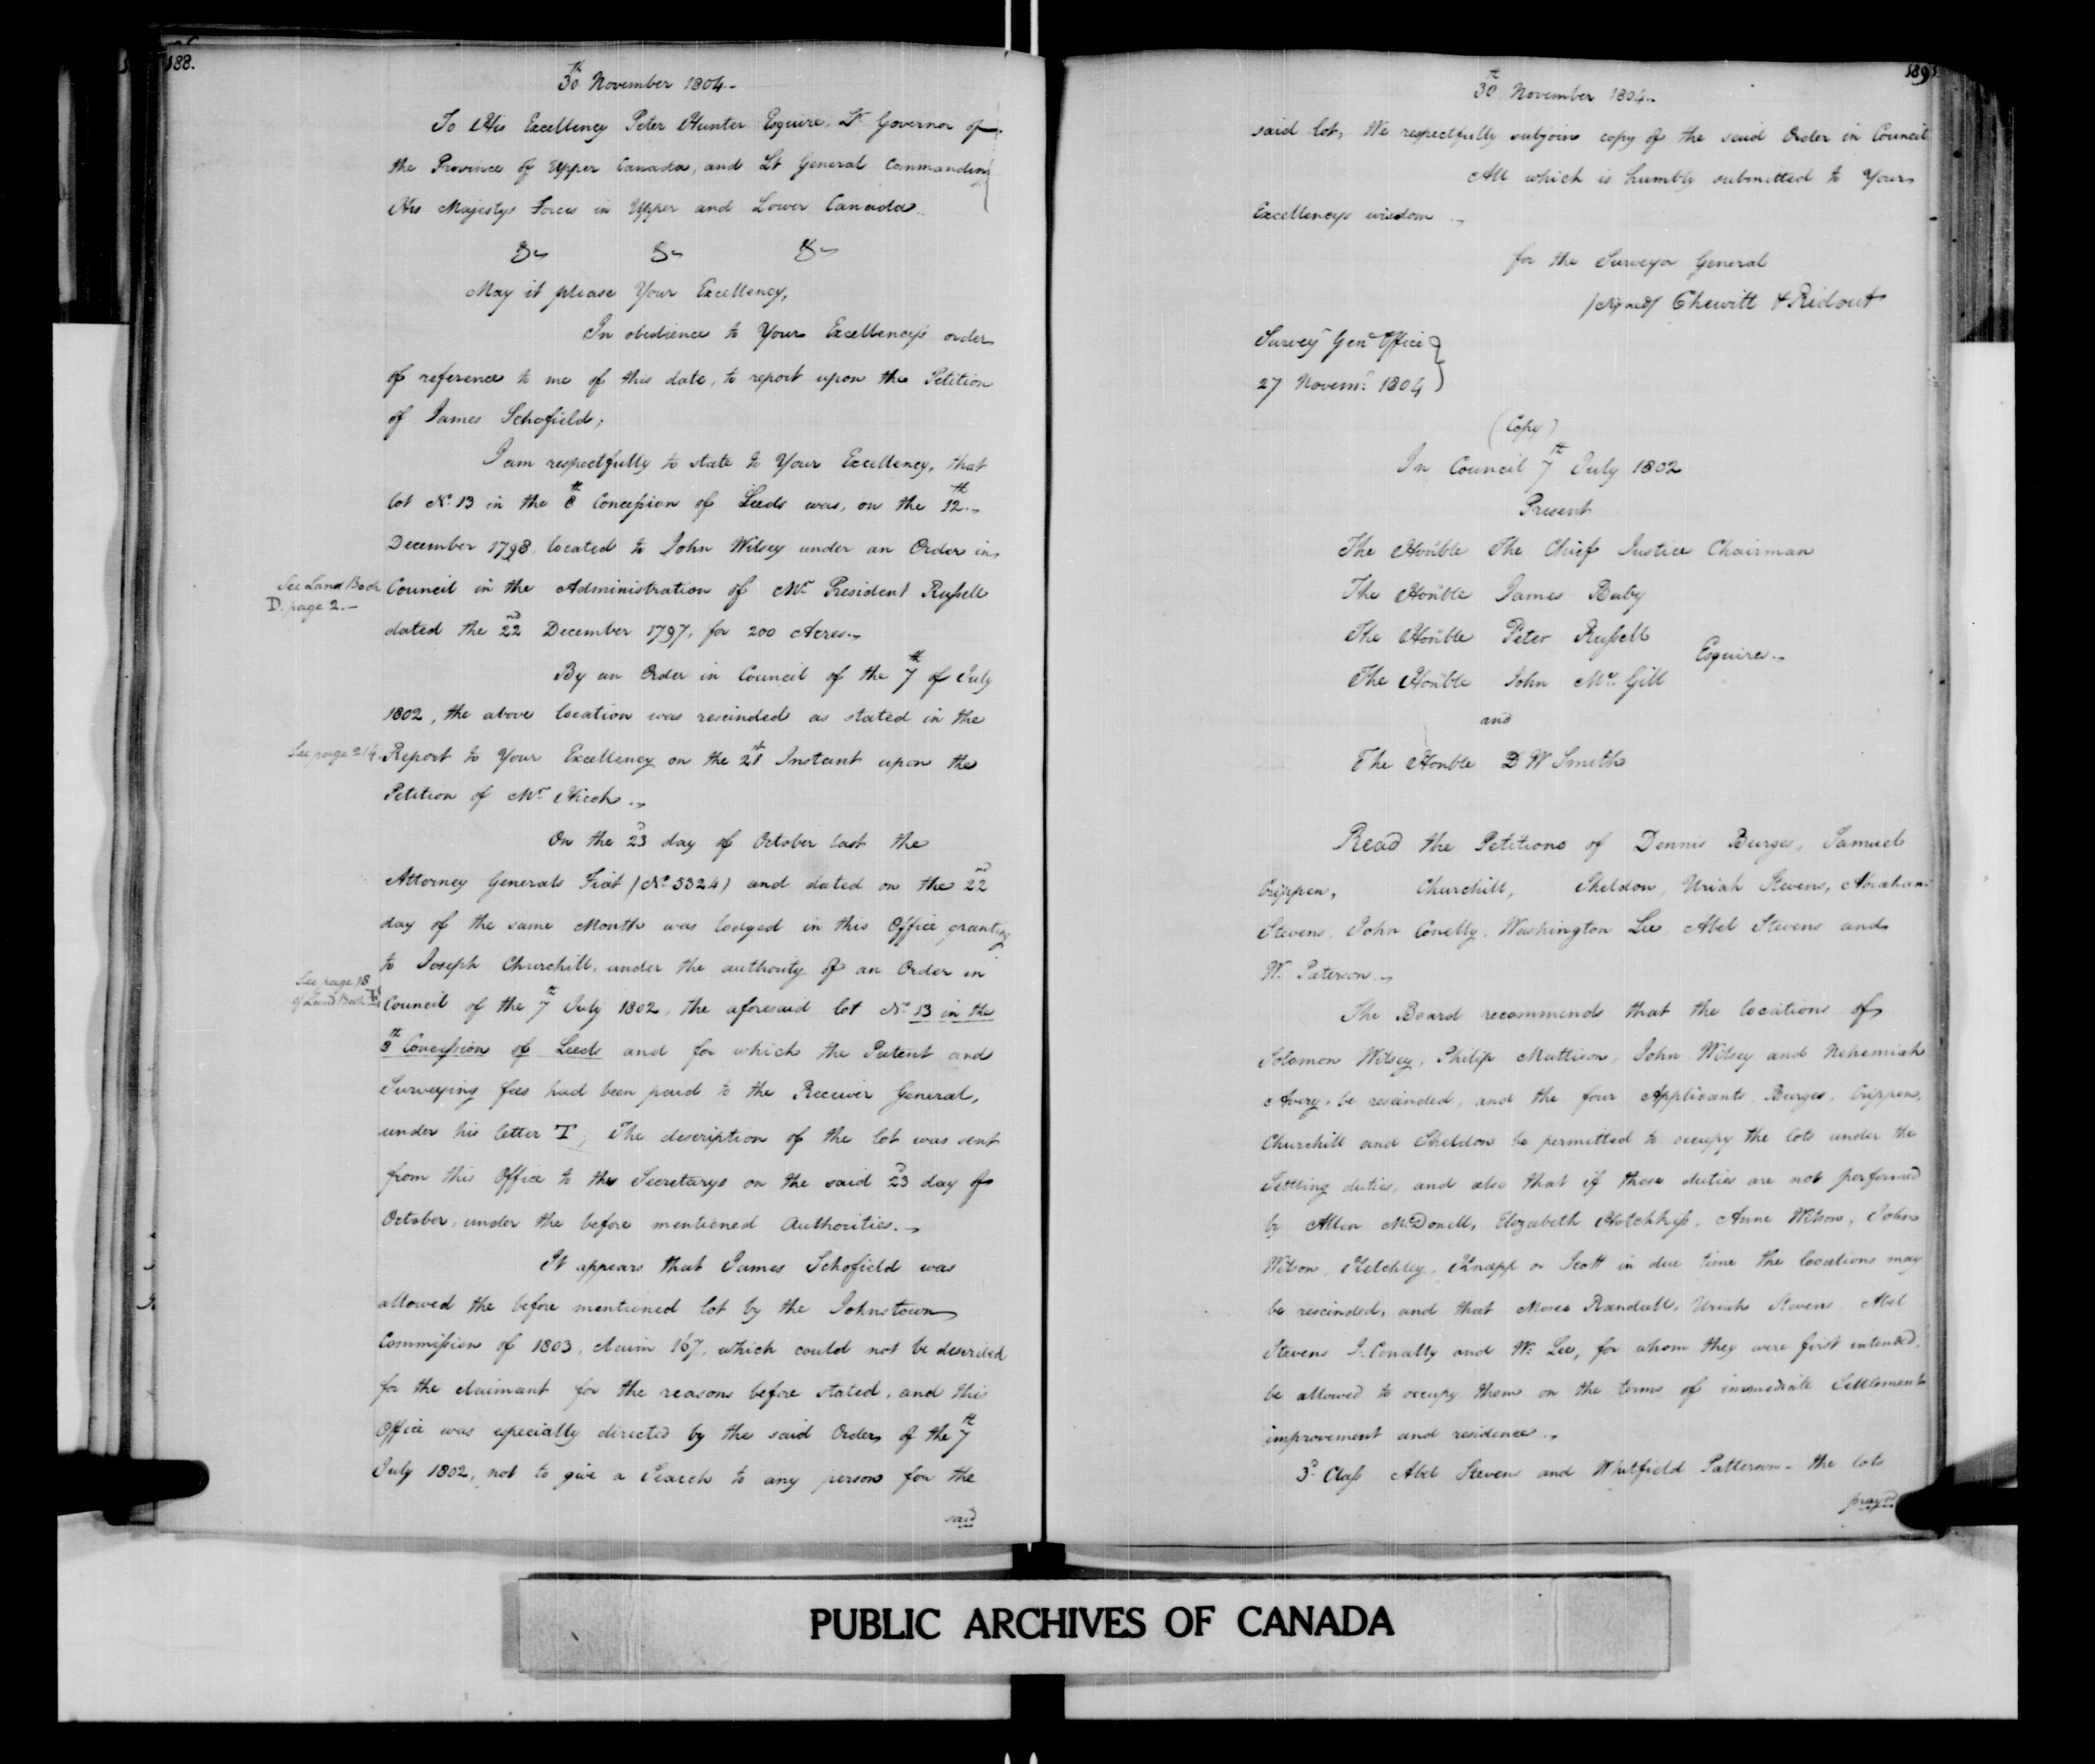 188.
30th November 1804.-
To His Excellency Peter Hunter Esquire, Lt Governor of
the Province of Upper Canada, and Lt General Commanding
His Majestys Forces in Upper and Lower Canada
&c &c &c
May it please Your Excellency,
In obedience to Your Excellencys order
of reference to me of this date, to report upon the Petition
of James Schofield;
I am respectfully to state to Your Excellency, that
lot No 13 in the 8th Concession of Leeds was, on the 12th
December 1798, located to John Wilsey under an Order in
See Land Book
D. page 2.-
Council in the Administration of Mr President Russell
dated the 22nd December 1797, for 200 Acres.-
By an Order in Council of the 7th of July
1802, the above location was rescinded as stated in the
See page 214
Report to Your Excellency on the 21st Instant upon the
Petition of Mr Hicok.-
On the 23d day of October last the
Attorney Generals Fiat (No 5324) and dated on the 22nd
day of the same Month was lodged in this Office granting
to Joseph Churchill, under the authority of an Order in
See page 18
of Land Book
Council of the 7th July 1802, the aforesaid lot No 13 in the
8th Concession of Leeds and for which the Patent and
Surveying fees had been paid to the Receiver General,
under his letter T; The description of the lot was sent
from this Office to the Secretarys on the said 23d day of
October, under the before mentioned Authorities.-
It appears that James Schofield was
allowed the before mentioned lot by the Johnstown
Commission of 1803, claim 167, which could not be described
for the claimant for the reasons before stated, and this
Office was especially directed by the said Order of the 7th
July 1802, not to give a Search to any person for the
said
189
30th November 1804.-
said lot, We respectfully subjoin copy of the said Order in Council
All which is humbly submitted to Your
Excellencys wisdom.-
for the Surveyor General
(signed) Chewitt & Ridout
Surveyr Genl Office
27 Novemr 1804
(Copy)
In Council 7th July 1802
Present
The Honble The Chief Justice Chairman
The Honble James Baby
The Honble Peter Russell
Esquires.-
The Honble John McGill
and
The Honble D W Smith
Read the Petitions of Dennis Burges, Samuel
Crippen, Churchill, Sheldon, Uriah Stevens, Abraham
Stevens, John Conelly, Washington Lee, Abel Stevens and
W. Paterson.-
The Board recommends that the locations of
Solomon Wilsey, Philip Mattison, John Wilsey and Nehemiah
Avery, be rescinded, and the four Applicants, Burges, Crippen,
Churchill and Sheldon be permitted to occupy the lots under the
Settling duties, and also that if those duties are not performed
by Allen McDonell, Elizabeth Hotchkiss, Anne Wilson, John
Wilson, Knapp or Scott in due time the locations may
be rescinded, and that Moses Randall, Uriah Stevens, Abel
Stevens J. Conally and W. Lee, for whom they were first intended,
be allowed to occupy them on the terms of immediate Settlement
improvement and residence.-
3d Class Abel Stevens and Whitfield Patterson - the lots
prayed
PUBLIC ARCHIVES OF CANADA